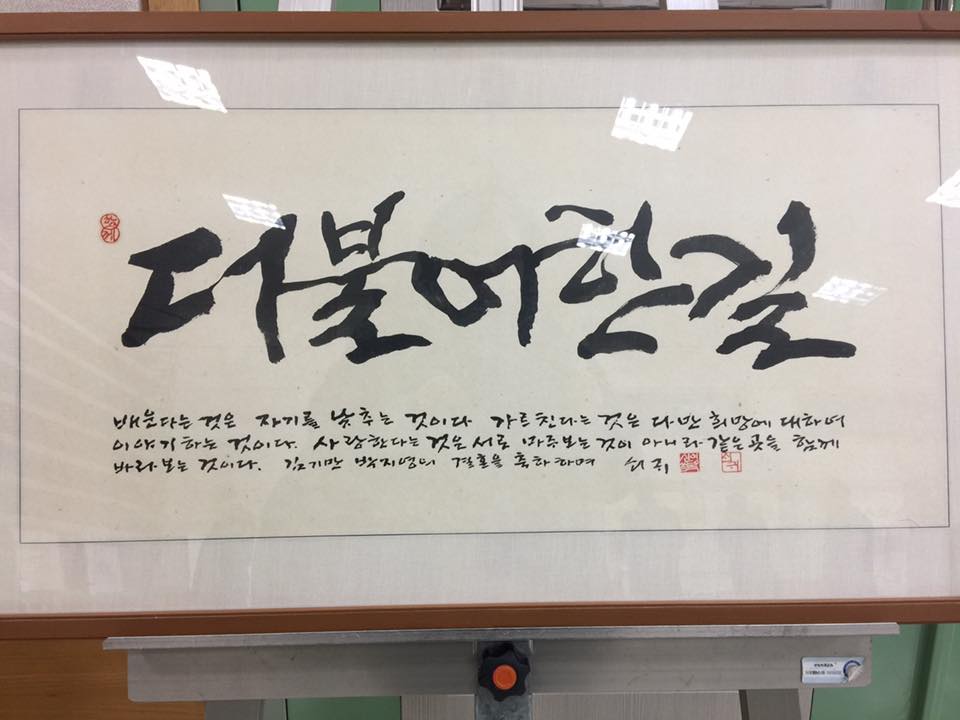 더불어한길
배운다는 것은 자기를 낮추는 것이다 가르친다는 것은 다만 희망에 대하여
이야기하는 것이다. 사랑한다는 것은 서로 마주보는 것이 아니라 같은 곳을 함께
바라보는 것이다. 김기만 박지영의 결혼을 축하하며 쇠귀